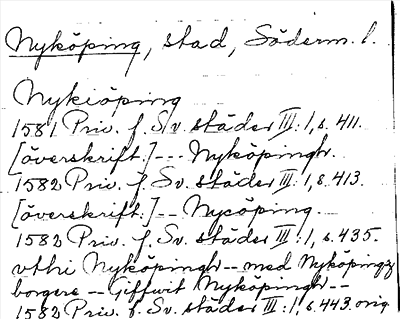 Nyköping, stad, Söderm. l.
Nykiöping
1581 Priv. f. Sv. städer III:1, s. 411.
[överskrift.] --- Nyköpingh.
1582 Priv. f. Sv. städer III:1, s. 413.
[överskrift.] -- Nycöping.
1582 Priv. f. Sv. städer III:1, s. 435.
vthi Nyköpingh -- med Nyköpingz
borgere -- Giffwit Nyköpingh --
1582 Priv. f. Sv. städer III:1, s. 443. orig.